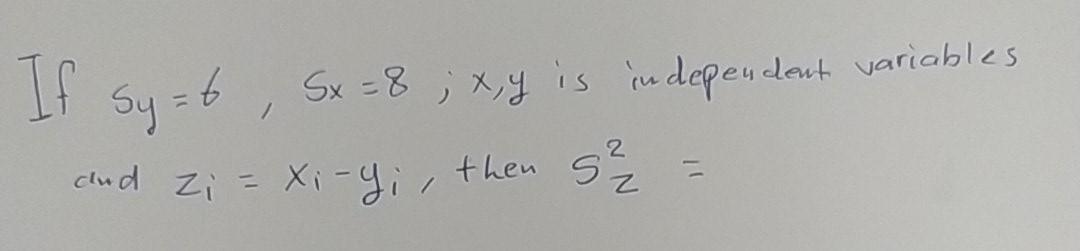 If Sy = 6 , Sx = 8 ; x,y is independent variables
and zᵢ = xᵢ - yᵢ , then S²z =